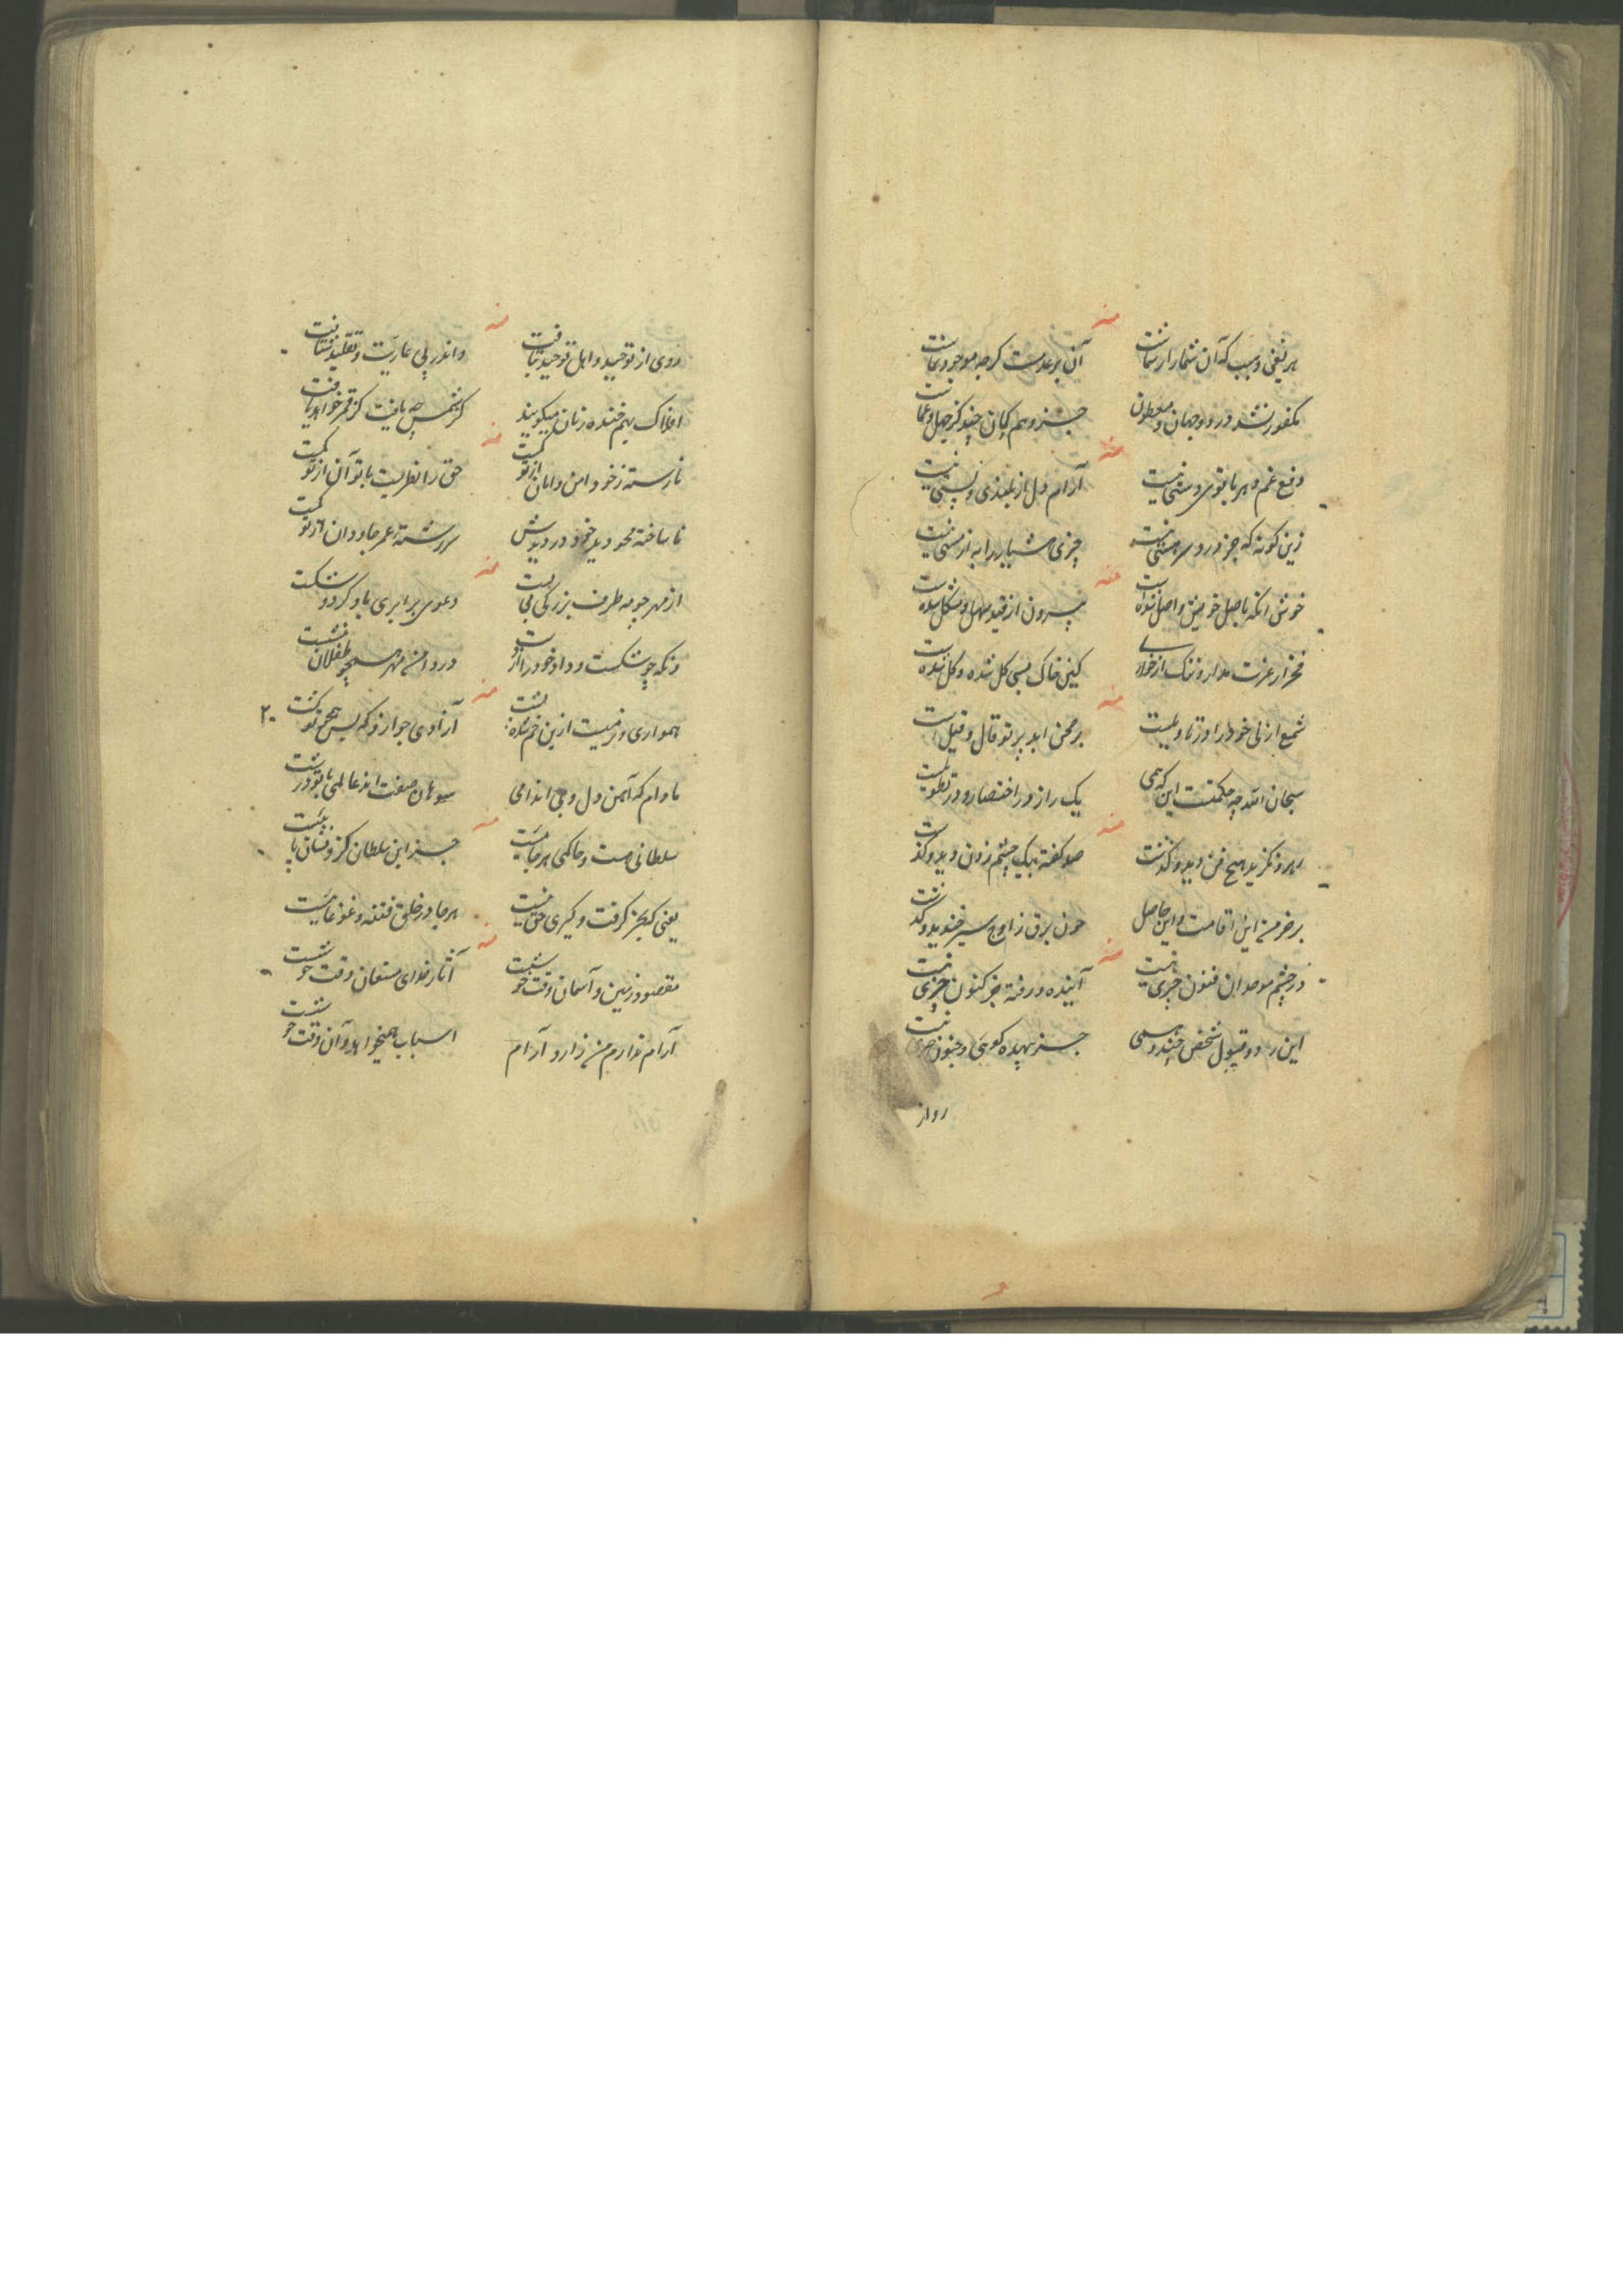 منه
هر نفی و سبب که آن شما را رسمانست آن بر عدمست کرچه موجود نماست
یکفور نشد در دو جهان جز و هم کمان چند کز جهل و عماست
منه
دفع غم دهر با قوی دستی نیست آرام دل از بلندی و پستی نیست
زین کونه که جز درد سر هستی نیست چیزی هشیار را به از مستی نیست
منه
خوش آنکه باصل خویش واصل شده است بیرون از قید سهل و مشکل شده است
فخر از عزت مدار و ننک از خواری کین خاک بسی کل شده و کل شده است
منه
شمع ازلی خود را بر محن ابد پرتو قال و قیل است
سبحان الله چه حکمتست این که همی یک راز در اختصار و در تطویلست
منه
رهرو نکزید هیچ فن دید و کذشت صد کفته بیک چشم زدن دید و کذشت
بر خرمن این اقامت و این حاصل چون برق ز اوج سیر خندید و کذشت
منه
در چشم موحدان فنون چیزی نیست آینده و رفته جز کنون چیزی نیست
این رد و قبول شخص چند وهمی جز بیهده کوئی و جنون چیزی نیست
روی از
روی از توحید و اهل توحید بتافت و اندر پی عاریت و تقلید شتافت
افلاک بهم خنده زنان میکویند کز شمس چه یافت کز قمر خواهد یافت
منه
نارسته ز خود امن و امان از تو کمست حق را نظریست با تو آن از تو کمست
ناساخته محو دید خود در دیدش سررشته عمر جاودان از تو کمست
منه
از مهر چو مه طرف بزرکی بر بست دعوی برابری باو کرد و شکست
زنکه چو شکست و داد خود را از دست در دامن مهر همچو طفلان بنشست
منه
همواری و نرمیست ازین خم شده پشت آزادی جو ازو که بس همچو تو کشت
مادام که آهن دل و بی اندامی سوهان صفت اند عالمی با تو درشت
منه
سلطانی هست و حاکمی هر جائیست جز این سلطان کزو نشان پیدا نیست
یعنی که بجز کرفت و کیری حق نیست هر جا در خلق فتنه و غوغائیست
منه
مقصود زمین و آسمان وقت خوشست آثار خدای مستعان وقت خوشست
آرام ندارم من زار و آرام اسباب همیخواهد و آن وقت خوشست
۲۰